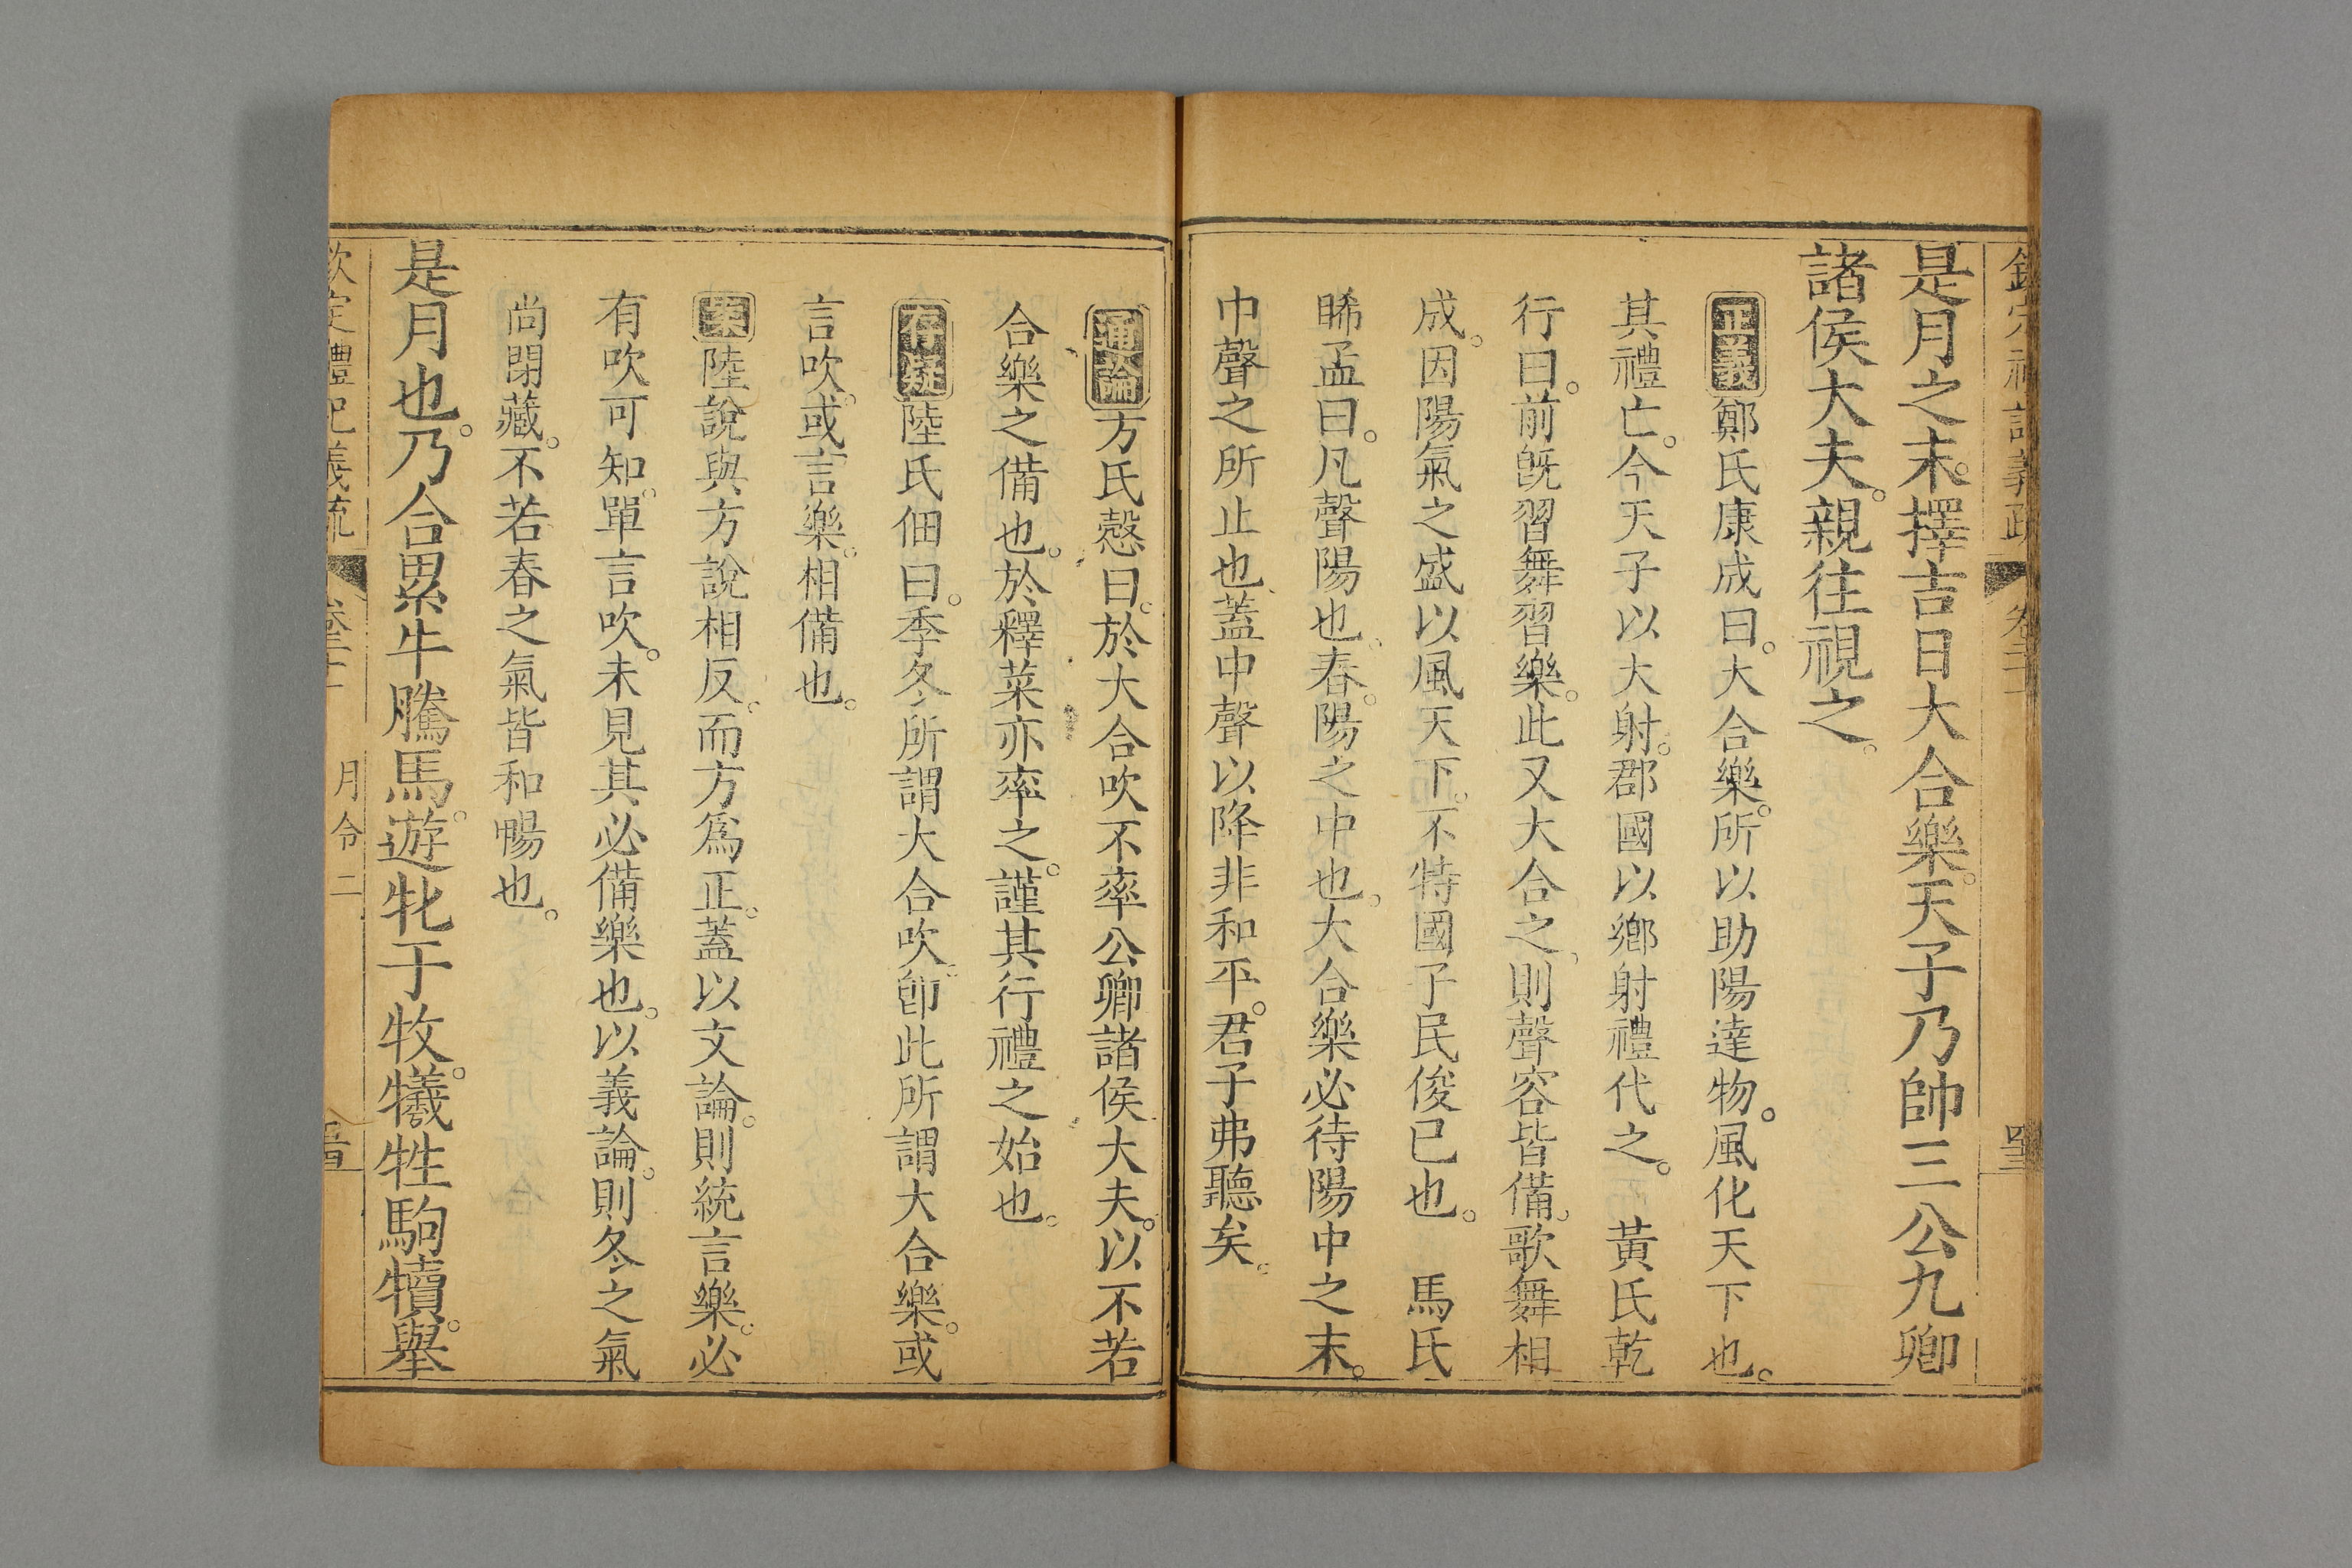 欽定禮記義疏 卷二十一
是月之末。擇吉日大合樂。天子乃帥三公九卿
諸侯大夫。親往視之。
正義鄭氏康成曰。大合樂。所以助陽達物。風化天下也。
其禮亡。今天子以大射。郡國以鄉射禮代之。 黃氏乾
行曰。前旣習舞習樂。此又大合之、則聲容皆備。歌舞相
成。因陽氣之盛以風天下。不特國子民俊已也。 馬氏
睎孟曰。凡聲陽也、春。陽之中也。大合樂必待陽中之末。
中聲之所止也、蓋中聲以降非和平。君子弗聽矣。
通論方氏慤曰。於大合吹不率公卿諸侯大夫。以不若
合樂之備也。於釋菜亦率之。謹其行禮之始也。
存疑陸氏佃曰。季冬所謂大合吹。卽此所謂大合樂。或
言吹。或言樂。相備也。
案陸說與方說相反。而方爲正。蓋以文論。則統言樂。必
有吹可知。單言吹。未見其必備樂也。以義論。則冬之氣
尚閉藏。不若春之氣皆和暢也。
是月也。乃合累牛騰馬。遊牝于牧。犧牲駒犢。舉
欽定禮記義疏 月令二